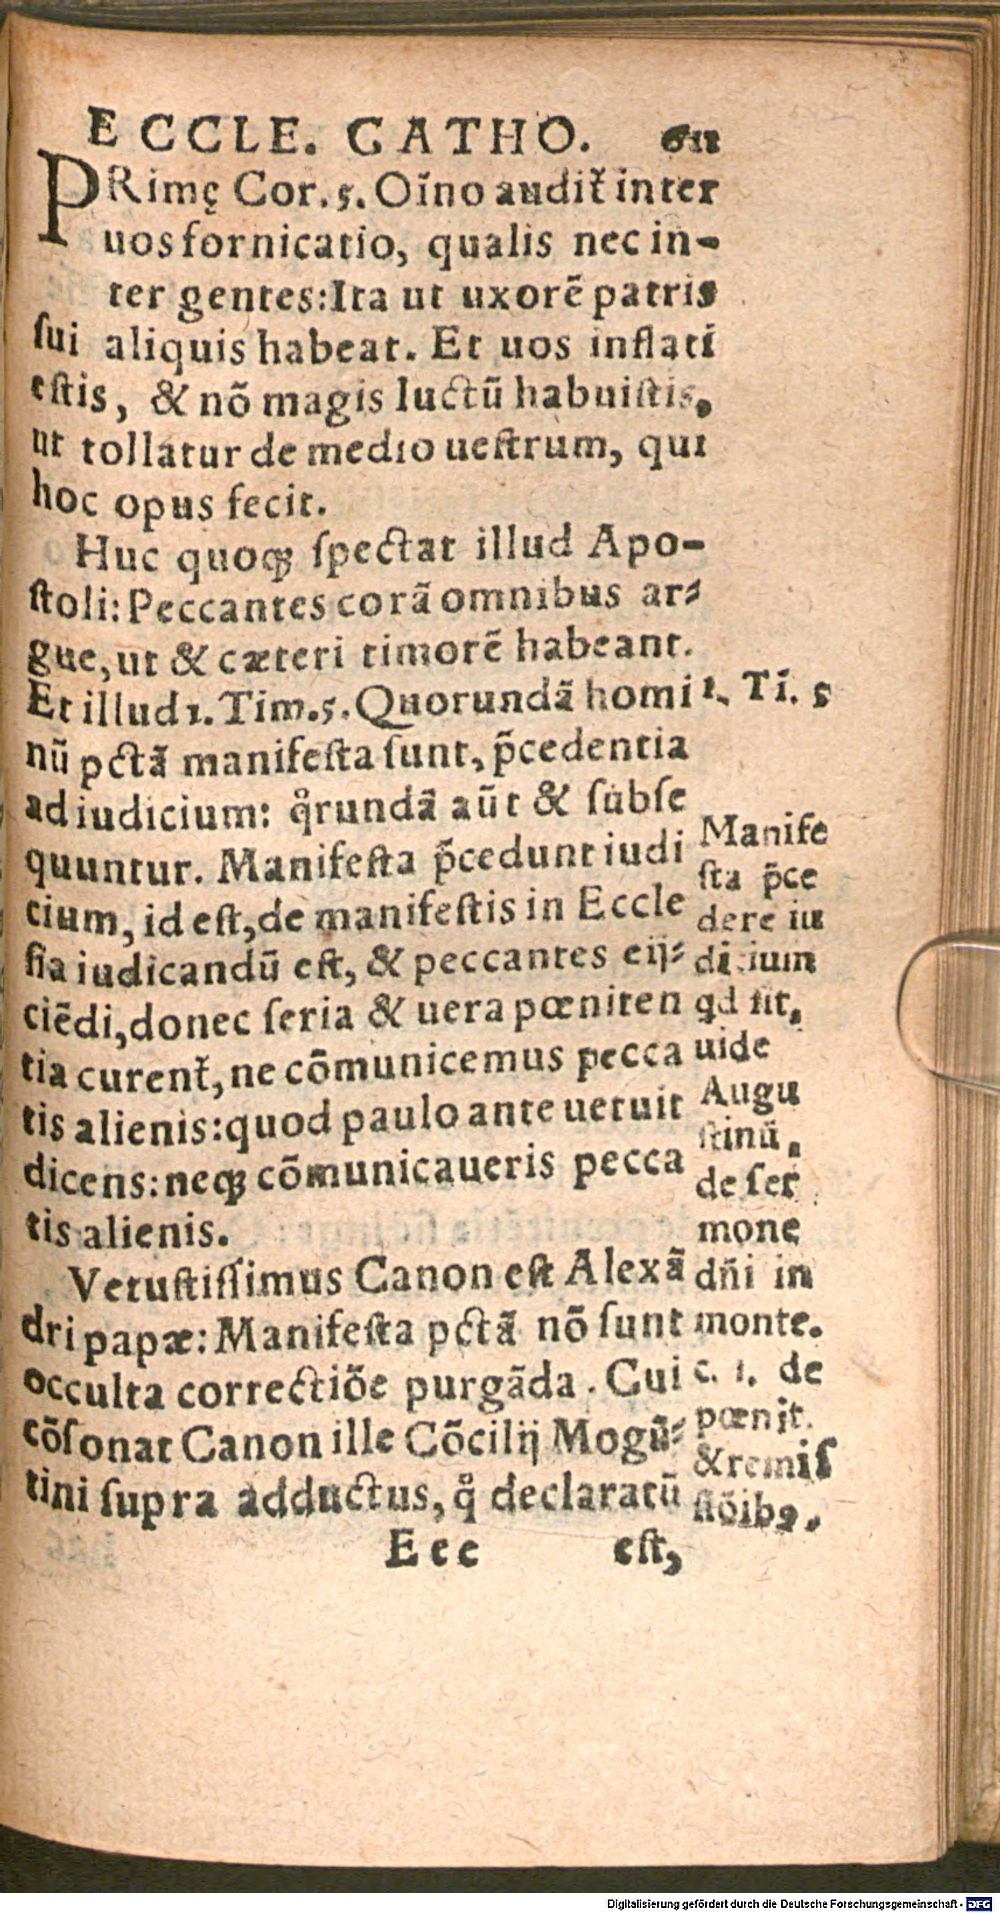 ECCLE. CATHO. 611
PRimę Cor. 5. Oīno audit̃ inter
uos fornicatio, qualis nec in-
ter gentes: Ita ut uxorē patris
ſui aliquis habeat. Et uos inflati
eſtis, & nō magis luctū habuiſtis,
ut tollatur de medio ueſtrum, qui
hoc opus fecit.
Huc quoqꝫ ſpectat illud Apo-
ſtoli: Peccantes corā omnibus ar⸗
gue, ut & cæteri timorē habeant.
Et illud 1. Tim. 5. Quorundā homi
nū pctā manifeſta ſunt, p̄cedentia
ad iudicium: q̊rundā aūt & ſubſe
quuntur. Manifeſta p̄cedunt iudi
cium, id eſt, de manifeſtis in Eccle
ſia iudicandū eſt, & peccantes eij⸗
ciēdi, donec ſeria & uera pœniten
tia curent̃, ne cōmunicemus pecca
tis alienis: quod paulo ante uetuit
dicens: neqꝫ cōmunicaueris pecca
tis alienis.
Vetuſtiſſimus Canon eſt Alexā
dri papæ: Manifeſta pctā nō ſunt
occulta correctiōe purgāda. Cui
cōſonat Canon ille Cōcilij Mogū⸗
tini ſupra adductus, q̊ declaratū
Eee eſt,
1. Tī. 5
Manife
ſta p̄ce
dere iu
dicium
qd ſit,
uide
Augu
ſtinū,
de ſer
mone
dñi in
monte.
c. 1. de
pœnit.
& remiſ
ſiōibꝰ.
Digitalisierung gefördert durch die Deutsche Forschungsgemeinschaft - DFG